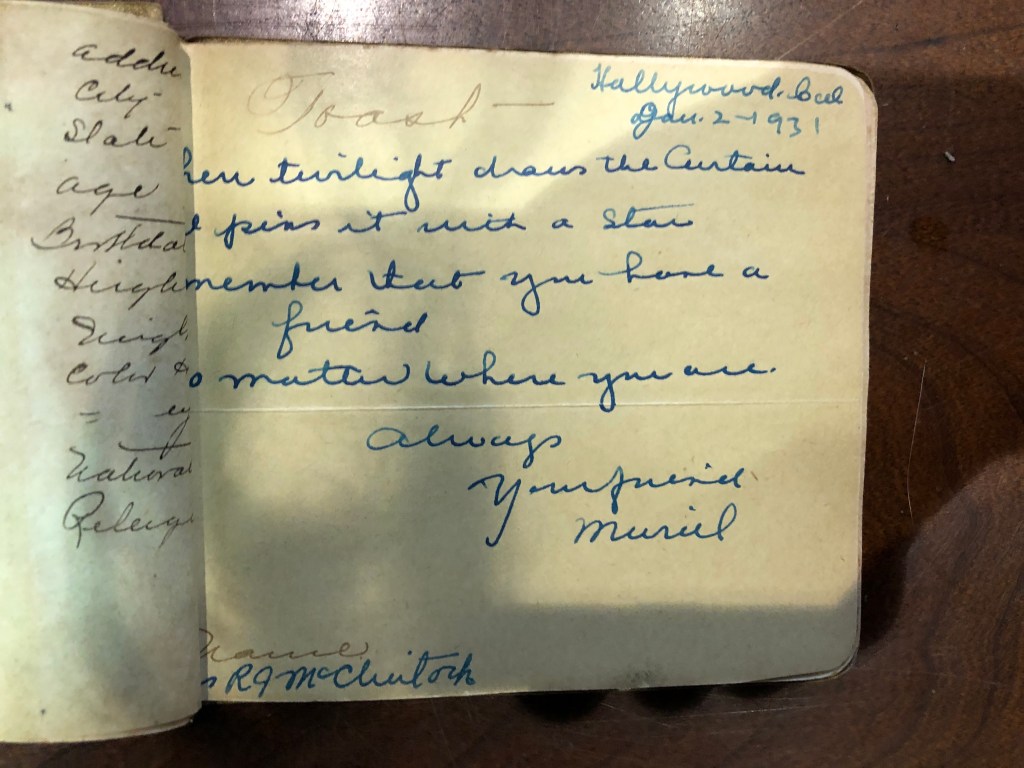 addre
City
State
age
Birthda
Heigh
Weigh
Color &
" ey
National
Religi
Toast —
Hollywood. Cal
Jan. 2-1931
hen twilight draws the Curtain
d pins it with a Star
member that you have a
friend
o matter where you are.
Always
Your friend
Muriel
Name
s R J McClintock